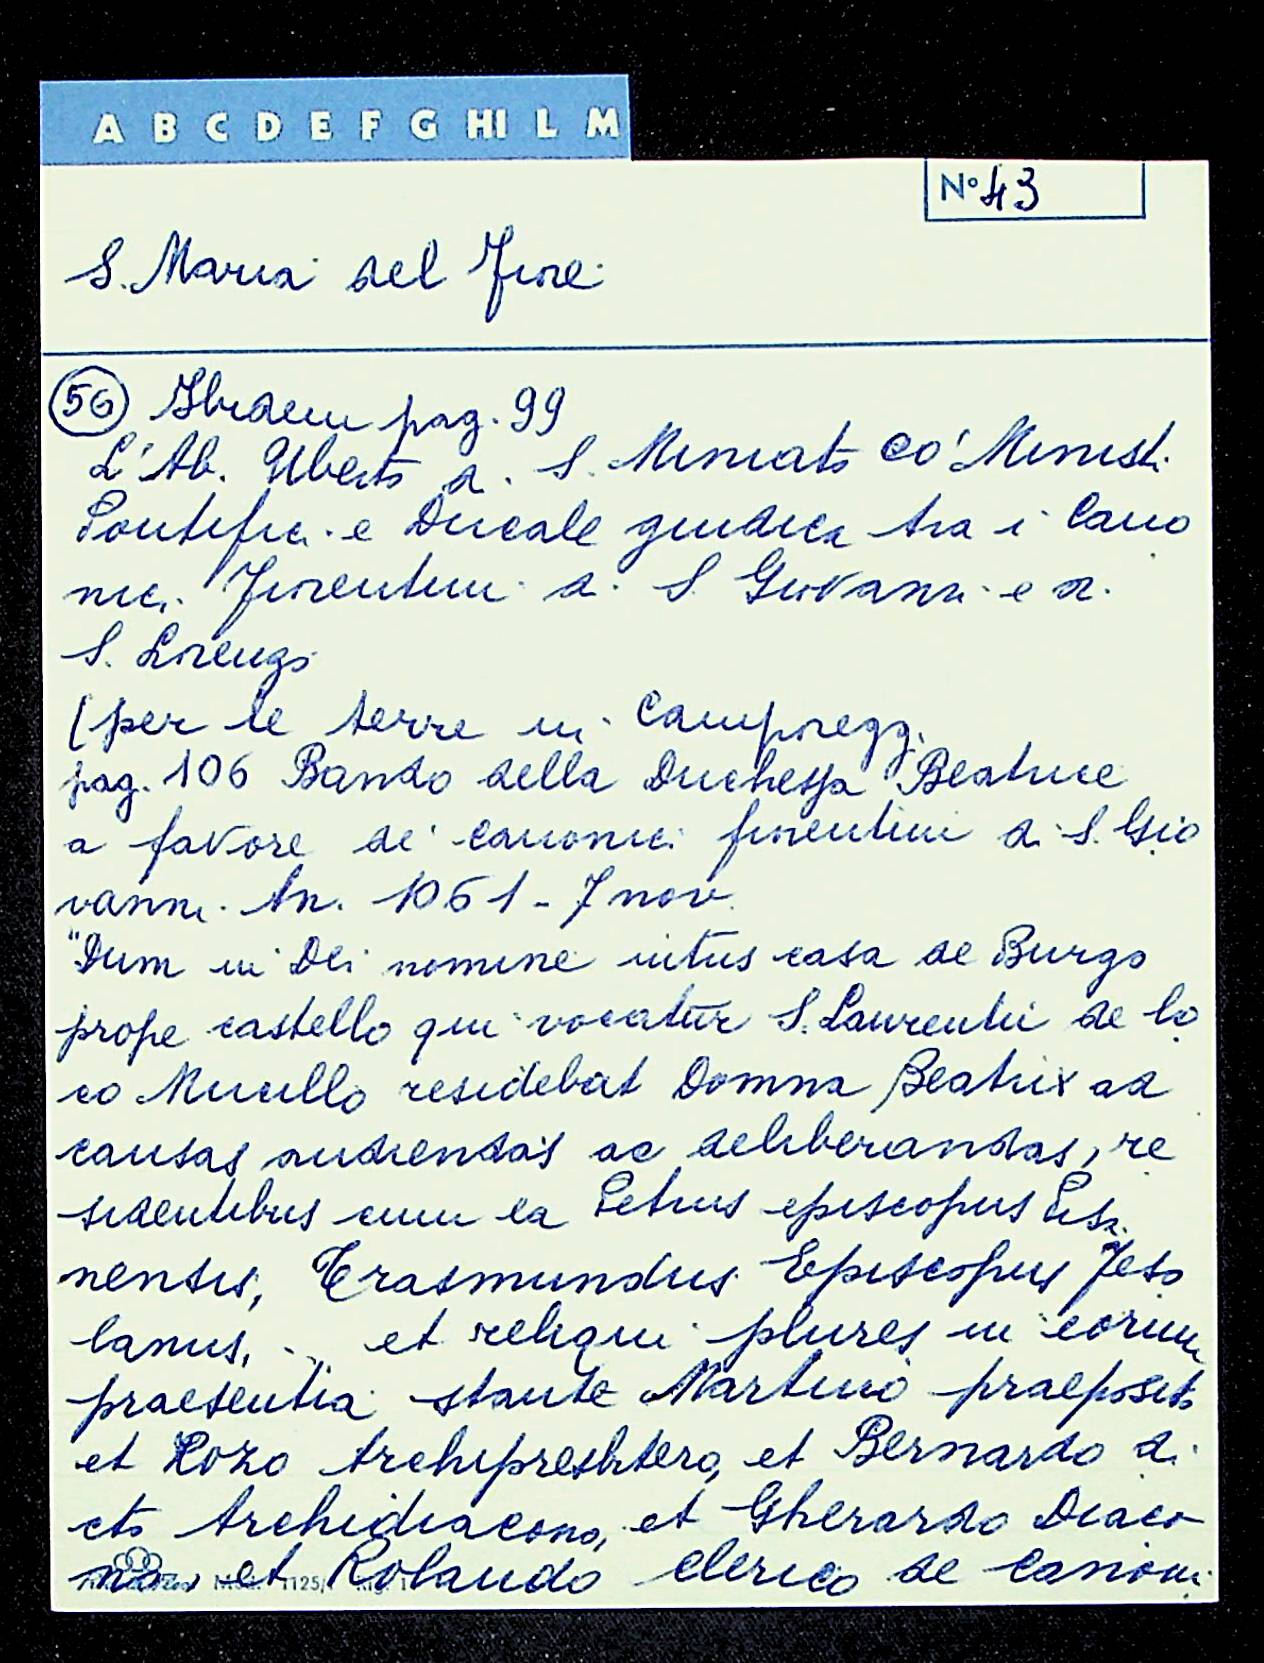 A B C D E F G HI L M
N° 43
S. Maria del Fiore
56 Ibidem pag. 99
L'Ab. Uberto di S. Miniato co' Ministi
Pontefici e Ducale giudica tra i Cano
nici Fiorentini di S. Giovanni e di
S. Lorenzo
(per le terre in Camporegg.
pag. 106 Bando della Duchessa Beatrice
a favore de' canonici fiorentini di S. Gio
vanni. An. 1061 - 7 nov.
"Dum in Dei nomine intus casa de Burgo
prope castello qui vocatur S. Laurentii de lo
co Mucillo residebat Domna Beatrix ad
causas audiendas ac deliberandas, re
sidentibus cum ea Petrus episcopus
nensis, Trasmundus Episcopus Feso
lanus, ... et reliqui plures in eorum
praesentia stante Martino praeposito
et Rozo Archipresbitero, et Bernardo di
cto Archidiacono, et Gherardo Diaco
no, et Rolando clerico de canoni